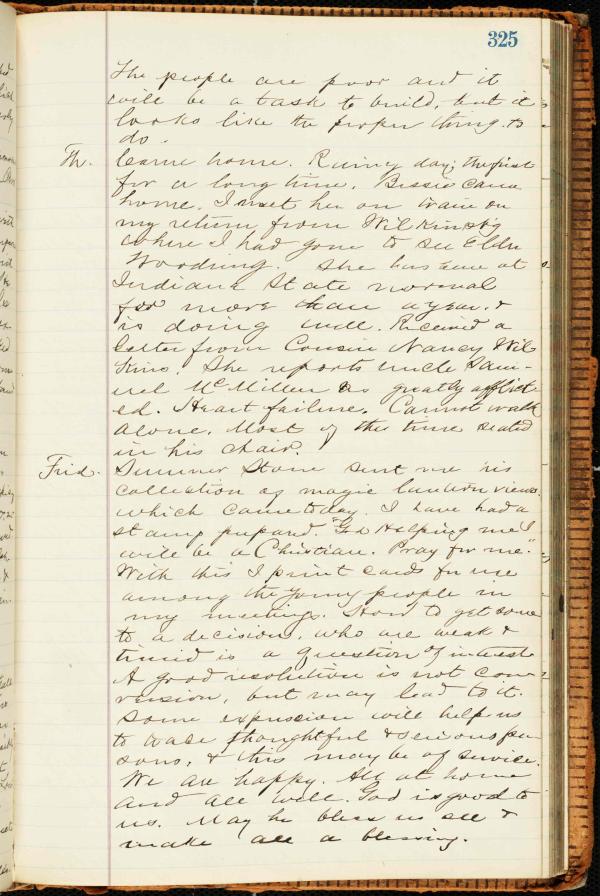 325
The people are poor and it
will be a task to build, but it
looks like the proper thing to
do.
Th. Came home. Rainy day; the first
for a long time. Bessie came
home. I met her on train on
my return from Wilkinsbg
where I had gone to see Elder
Woodring. She has been at
Indiana State normal
for more than a year. &
is doing well. Received a
letter from Cousin Nancy Wil-
kins. She reports uncle Sam-
uel McMillen as greatly afflict-
ed. Heart failure. Cannot walk
alone. Most of the time seated
in his chair.
Frid. Summer Stone sent me his
collection of magic lantern views.
which came today. I have had a
stamp prepared. "God Helping me I
will be a Christian. Pray for me."
With this I print cards for use
among the young people in
my meetings. How to get some
to a decision, who are weak &
timid is a question of interest.
A good resolution is not con-
version, but may lead to it.
Some expression will help us
to trace thoughtful & serious per-
sons, & this may be of service.
We are happy. All at home
and all well. God is good to
us. May he bless us all &
make all a blessing.